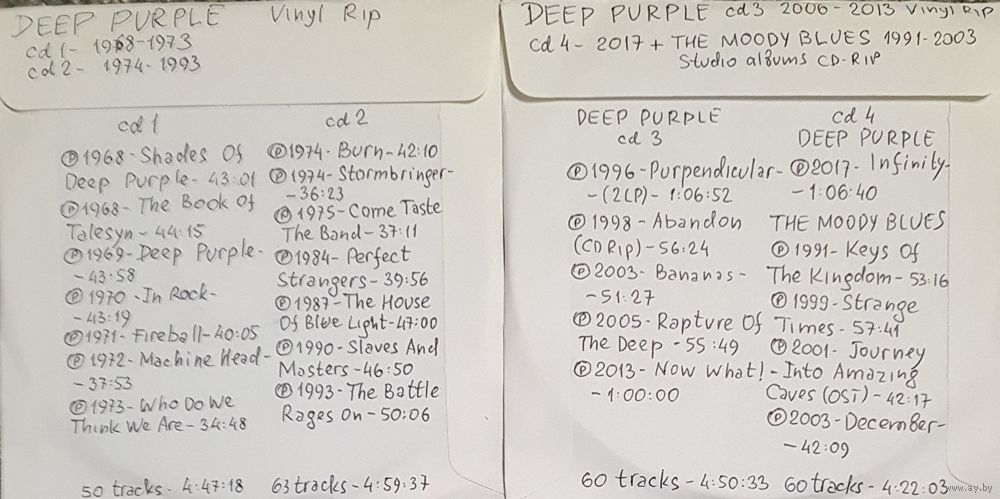 DEEP PURPLE Vinyl Rip
cd 1- 1968-1973
cd 2- 1974-1993
cd 1
℗1968-Shades Of
Deep Purple-43:01
℗1968-The Book Of
Talesyn-44:15
℗1969-Deep Purple-
-43:58
℗1970-In Rock-
-43:19
℗1971-Fireball-40:05
℗1972-Machine Head-
-37:53
℗1973-Who Do We
Think We Are-34:48
50 tracks-4:47:18
cd 2
℗1974-Burn-42:10
℗1974-Stormbringer-
-36:23
℗1975-Come Taste
The Band-37:11
℗1984-Perfect
Strangers-39:56
℗1987-The House
Of Blue Light-47:00
℗1990-Slaves And
Masters-46:50
℗1993-The Battle
Rages On-50:06
63 tracks-4:59:37
DEEP PURPLE cd3 2006-2013 Vinyl Rip
cd 4- 2017 + THE MOODY BLUES 1991-2003
Studio albums CD-RIP
DEEP PURPLE
cd 3
℗1996-Purpendicular-
-(2LP)-1:06:52
℗1998-Abandon
(CD Rip)-56:24
℗2003-Bananas-
-51:27
℗2005-Rapture Of
The Deep-55:49
℗2013-Now What!-
-1:00:00
60 tracks-4:50:33
cd 4
DEEP PURPLE
℗2017-Infinity-
-1:06:40
THE MOODY BLUES
℗1991-Keys Of
The Kingdom-53:16
℗1999-Strange
Times-57:41
℗2001-Journey
Into Amazing
Caves (OST)-42:17
℗2003-December-
-42:09
60 tracks-4:22:03
www.ay.by